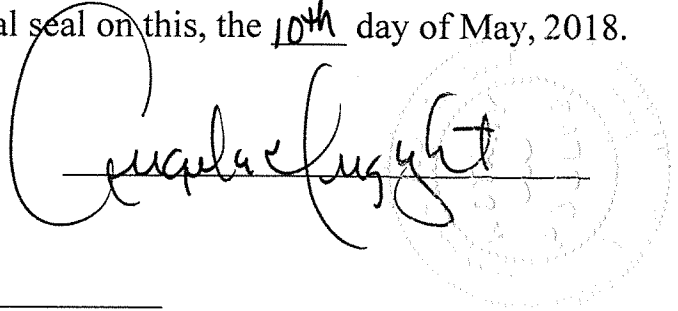 al seal on this, the 10th day of May, 2018.